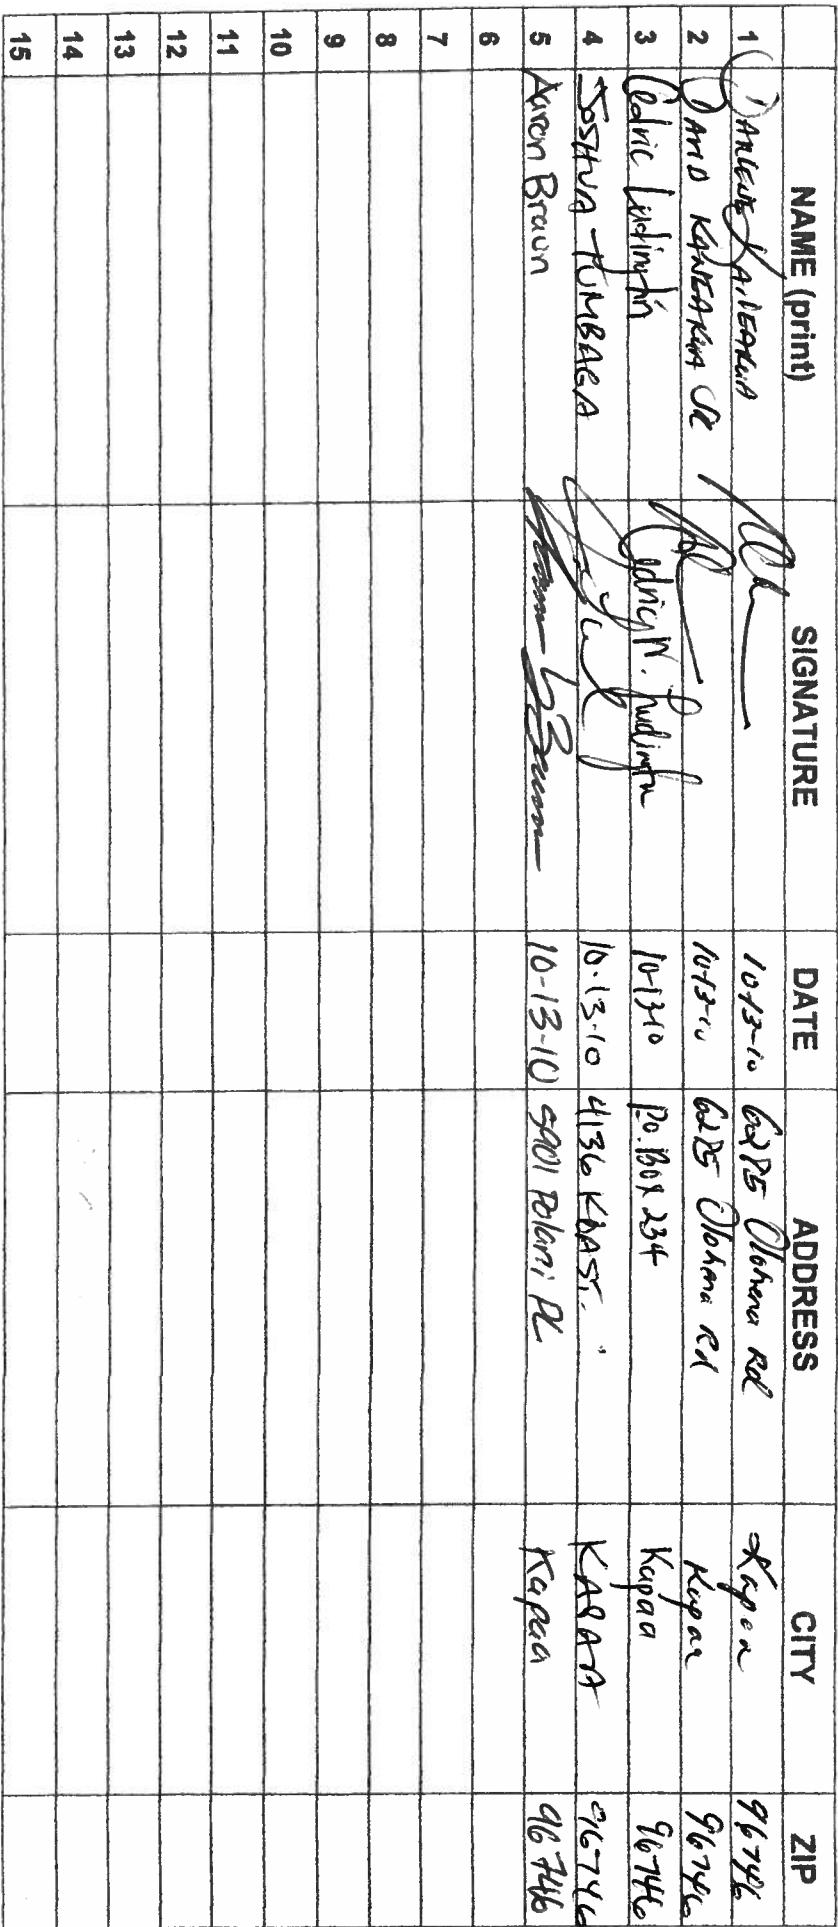 NAME (print) SIGNATURE DATE ADDRESS CITY ZIP
1 DARLENE 10-13-10 6285 Olohena Rd Kapaa 96746
2 DAVID KANEAKUA JR 10-13-10 6285 Olohena Rd Kapaa 96746
3 Cedric Ludington Cedric W. Ludington 10-13-10 P.O. Box 234 Kapaa 96746
4 JOSHUA TUMBAGA 10-13-10 4136 KAPAA 96746
5 Aaron Braun 10-13-10 5901 Pl Kapaa 96746
6
7
8
9
10
11
12
13
14
15